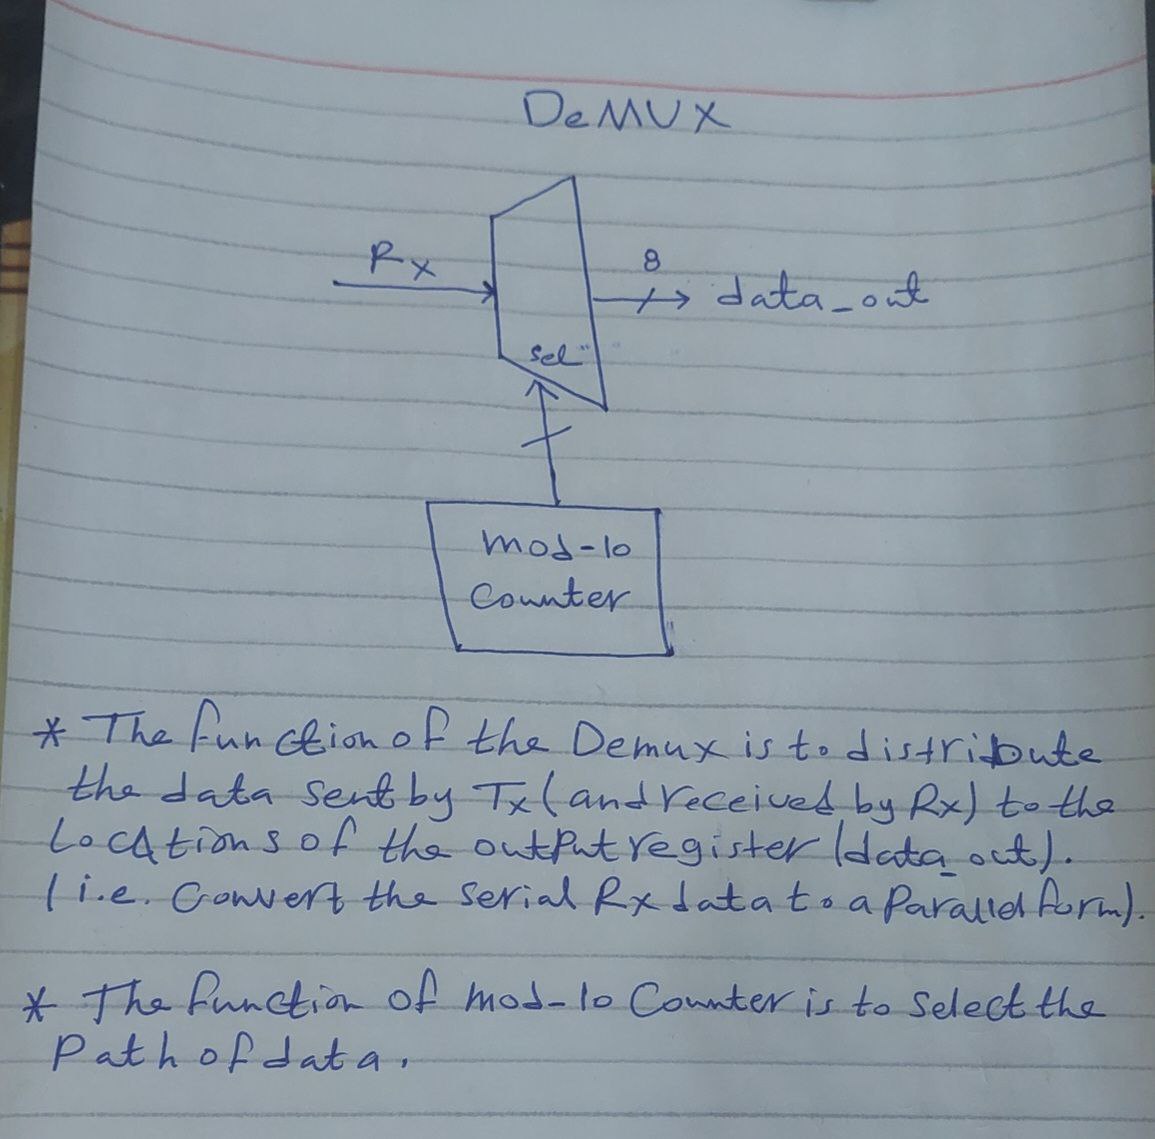 DeMUX
Rx
8
data_out
sel
mod-10
Counter
* The function of the Demux is to distribute
the data sent by Tx (and received by Rx) to the
Locations of the output register (data_out).
(i.e. Convert the serial Rx data to a Parallel form).
* The function of mod-10 Counter is to select the
Path of data.